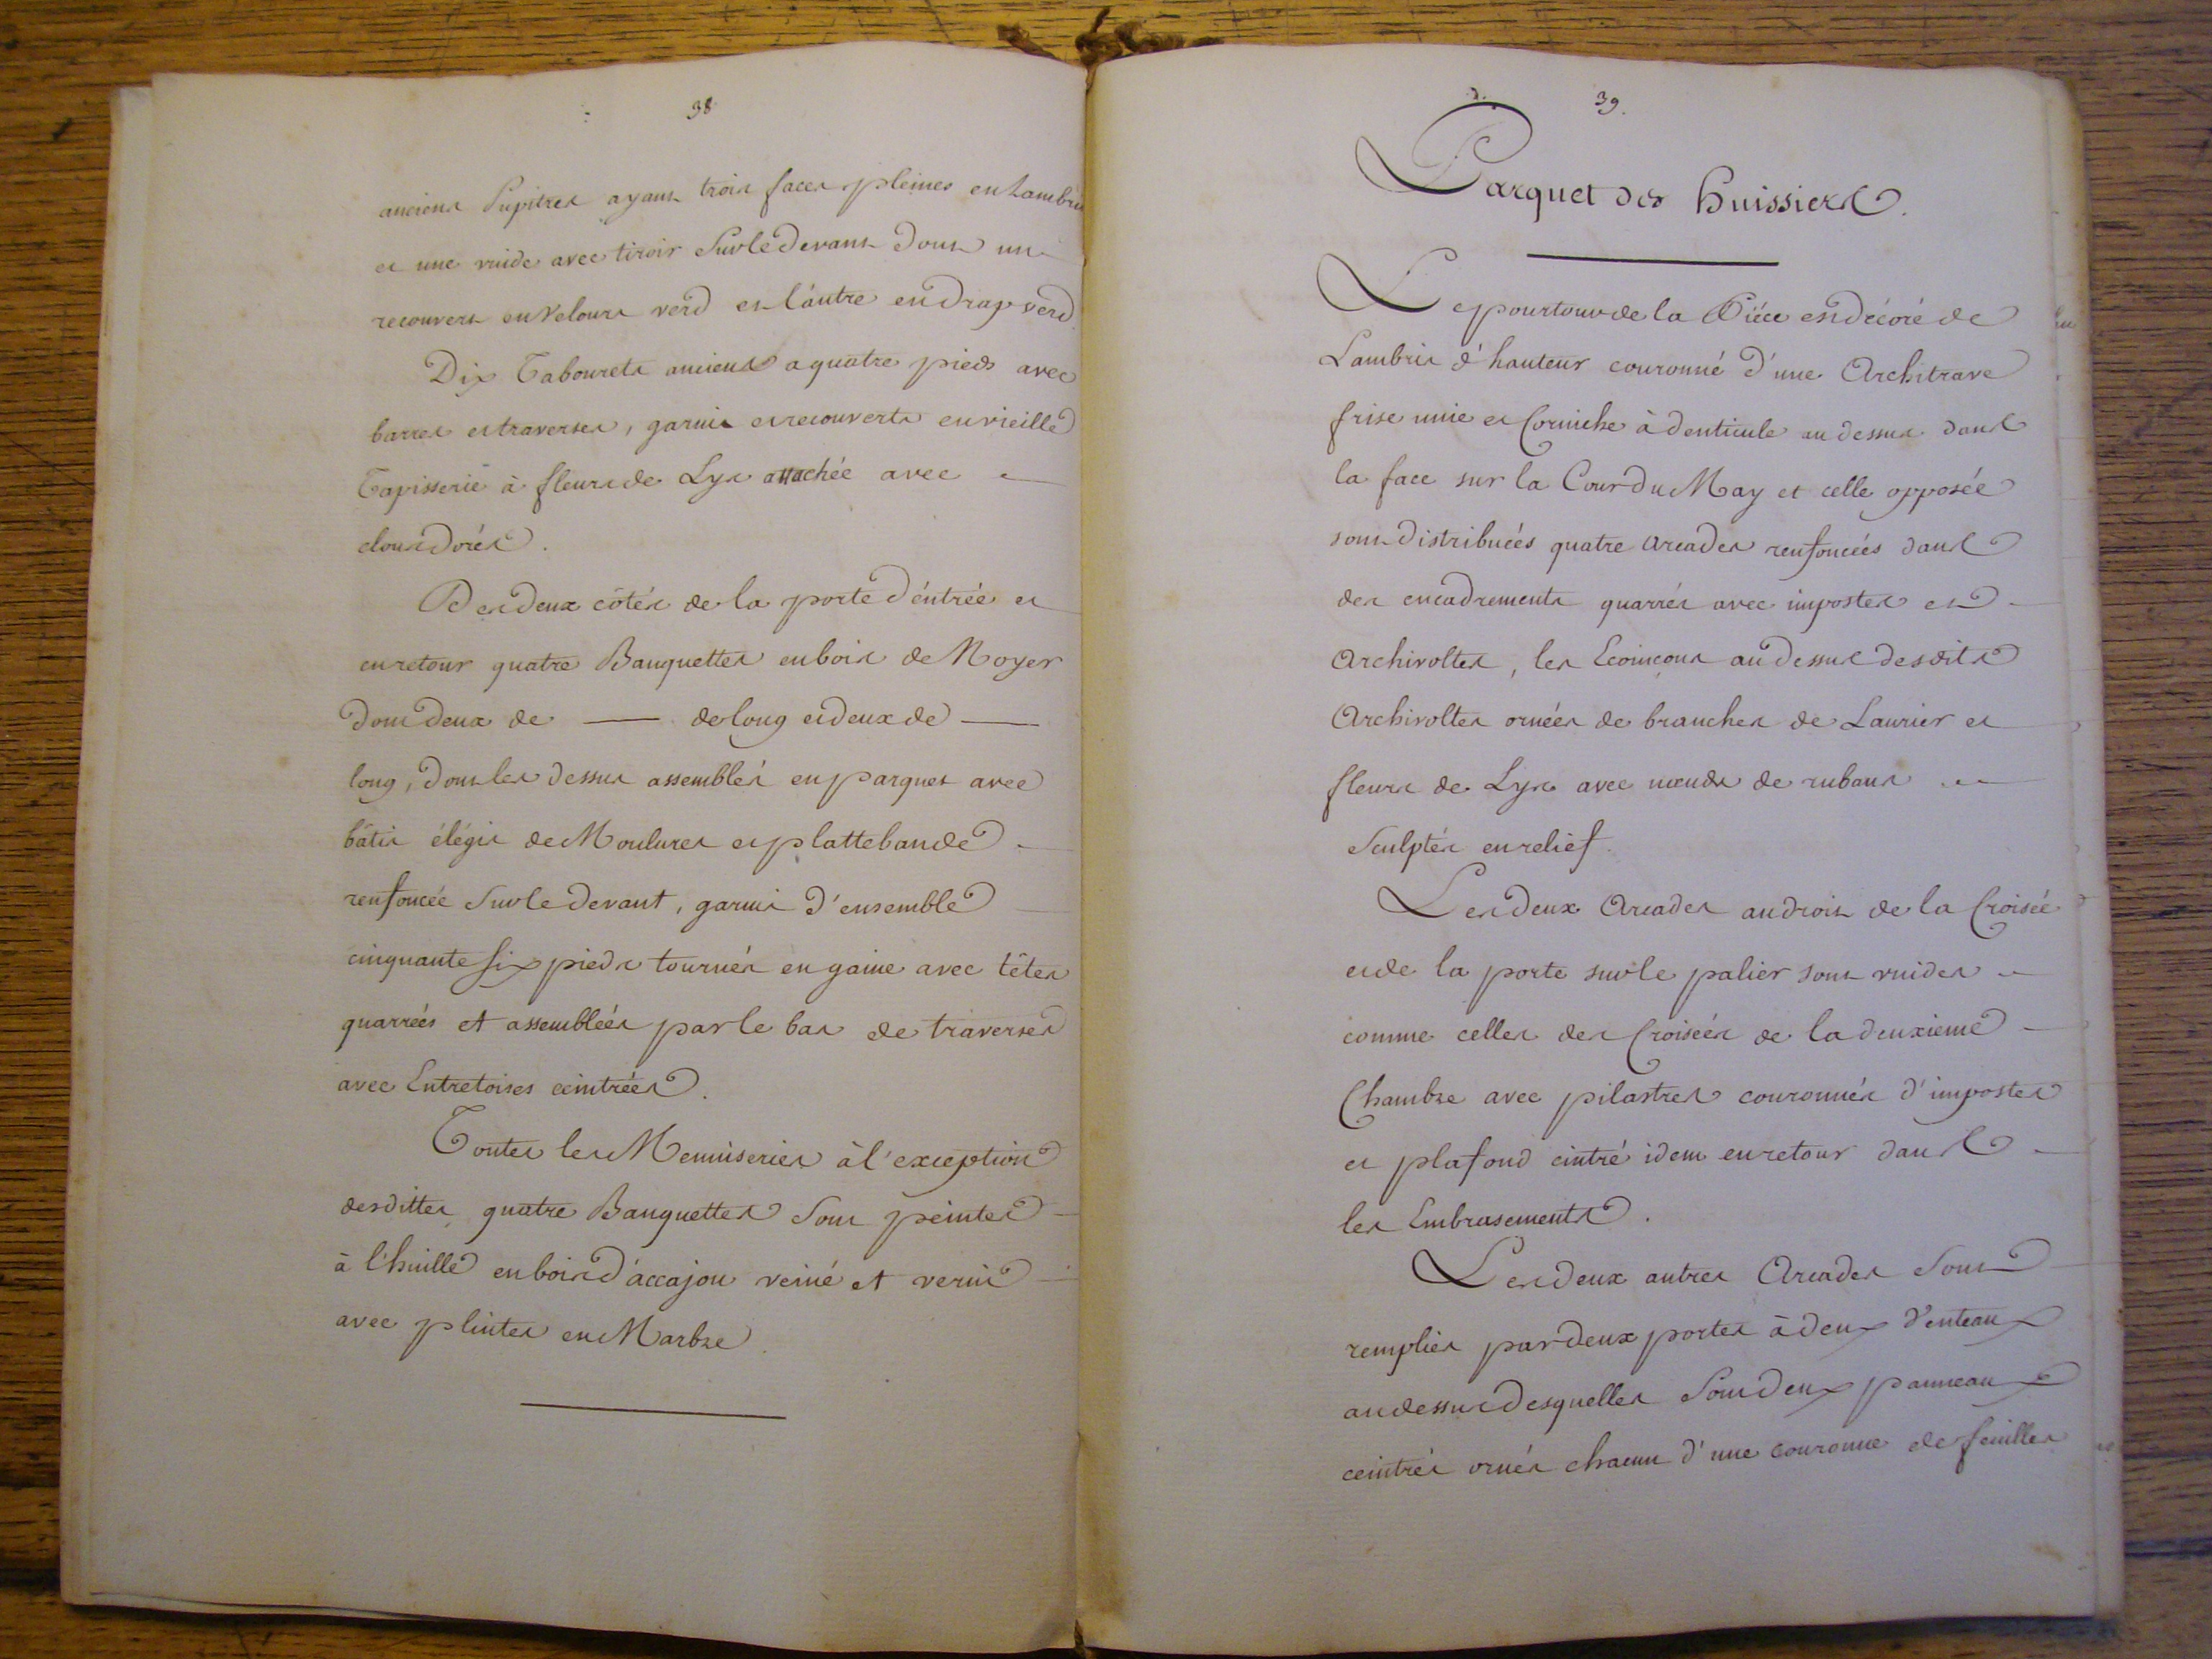 38
anciens Pupitres ayant trois faces pleines en Lambris
et une vuide avec tiroir sur le devant dont un
recouvert en velours verd et l'autre en drap verd
Dix Tabourets anciens a quatre pieds avec
barres et traverses, garnis et recouverts en vieille
Tapisserie à fleurs de Lys attachée avec
clous dorés.
Des deux côtés de la porte d'éntrée et
en retour quatre Banquettes en bois de Noyer
dont deux de —— de long et deux de ——
long, dont les dessus assemblés en parquet avec
bâtis élégis de Moulures et plattebande
renfoncée sur le devant, garnis d'ensemble
cinquante six pieds tournés en gaine avec têtes
quarrées et assemblées par le bas de traverses
avec Entretoises ceintrées.
Toutes les Menuiseries à l'exception
desdittes quatre Banquettes sont peintes
à l'huille en bois d'accajou veiné et verni
avec plintes en Marbre.
39.
Parquet des huissiers.
Le pourtour de la Piéce est décoré de
Lambris d'hauteur couronné d'une Architrave
frise unie et Corniche à denticule au dessus dans
la face sur la Cour du May et celle opposée
sont distribuées quatre arcades renfoncées dans
des encadrements quarrés avec impostes et
Archivoltes, les Ecoinçons au dessus desdits
Archivoltes ornées de branches de Laurier et
fleurs de Lys avec nœuds de rubans
sculptés en relief.
Les deux Arcades au droit de la Croisée
et de la porte sur le palier sont vuides
comme celles des Croisées de la deuxieme
Chambre avec pilastres couronnés d'impostes
et plafond cintré idem en retour dans
les Embrasements.
Les deux autres Arcades sont
remplies par deux portes à deux Venteaux
au dessus desquelles sont deux panneaux
ceintrés ornés chacun d'une couronne de feuilles